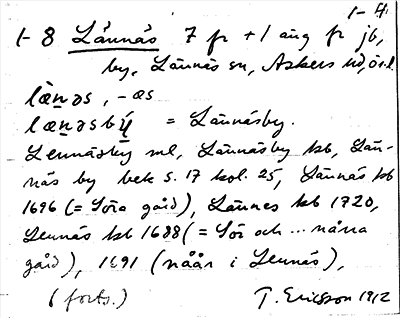 1-4.
1-8 Lännäs 7 fr +1 aug fr jb,
by, Lännäs sn, Askers hd, Ör.l.
læṉəs, -æs
læṉəsbý = Lännäsby.
Lennäsby ml, Lännäsby kb, Län-
näs by bek s. 17 kol. 25, Lännäs kb
1696 (= Söra gård), Lännes kb 1720,
Lennäs kb 1688 (= Sör och ... norra
gård), 1691 (nåår i Lennäs),
(forts.) T. Ericsson 1912